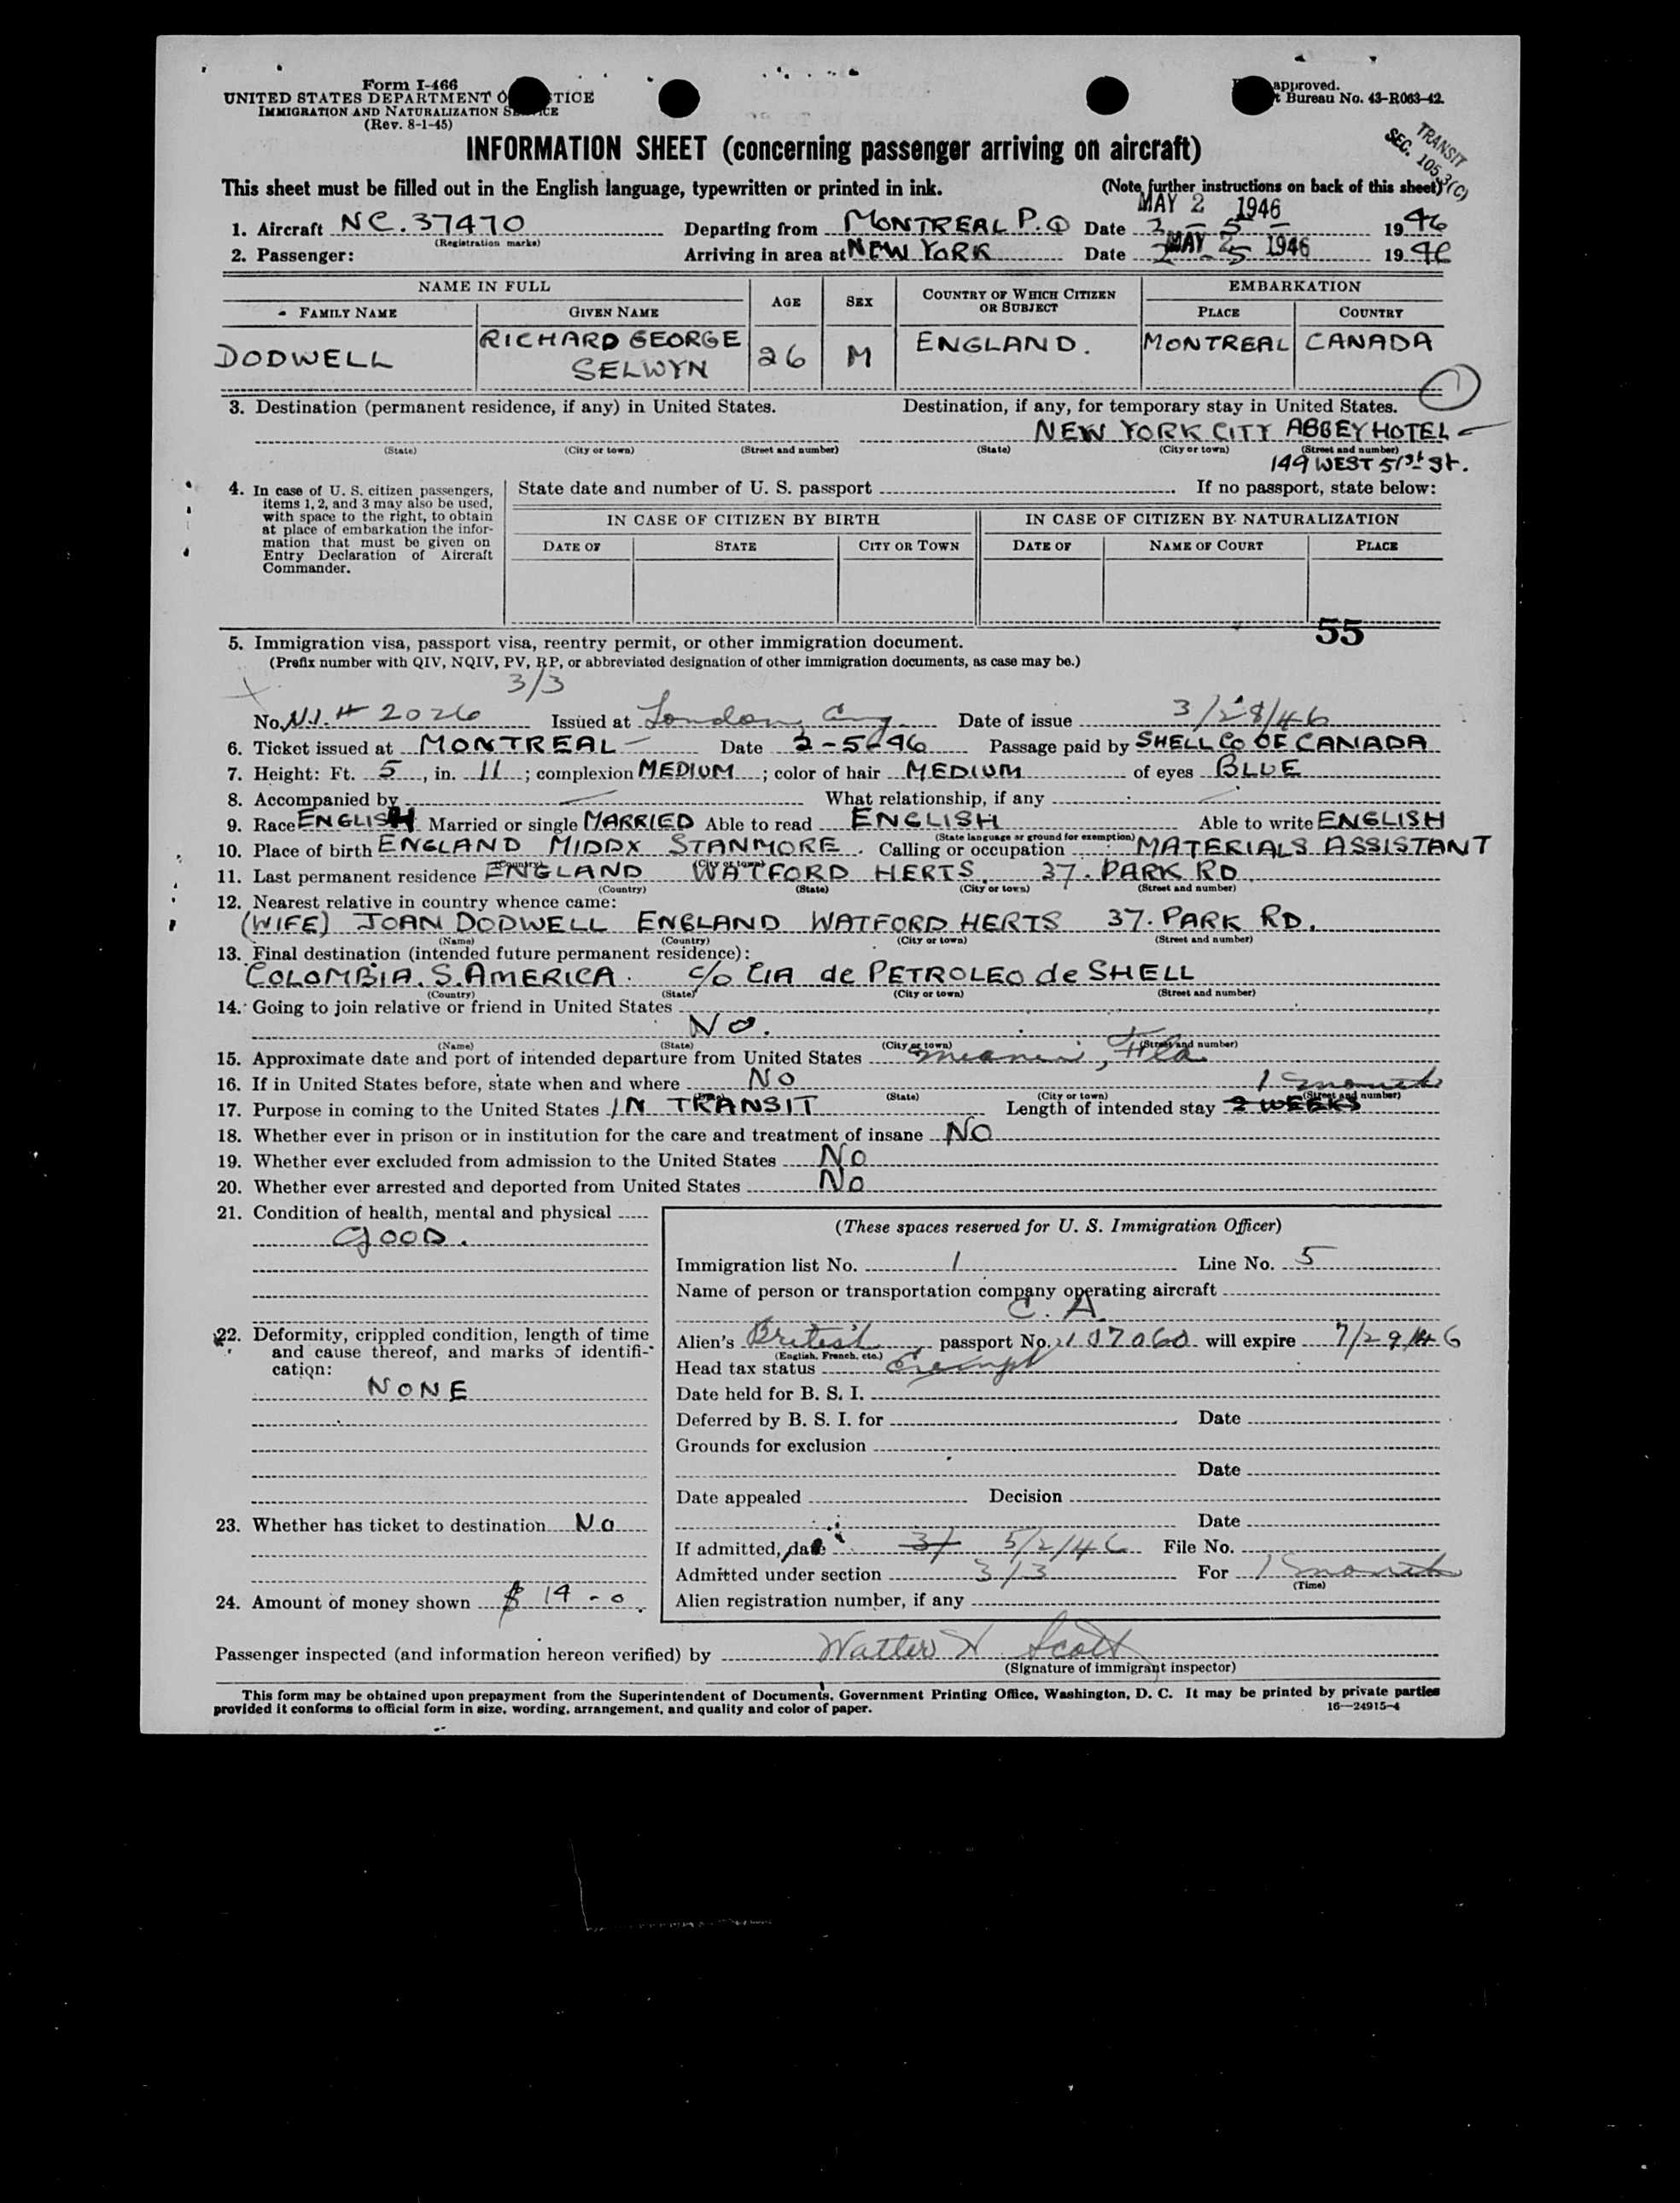 Form I-466
UNITED STATES DEPARTMENT O TICE
IMMIGRATION AND NATURALIZATION S ICE
(Rev. 8-1-45)
approved.
t Bureau No. 43-R063-42.
TRANSIT
SEC. 105.3(C)
INFORMATION SHEET (concerning passenger arriving on aircraft)
This sheet must be filled out in the English language, typewritten or printed in ink. (Note further instructions on back of this sheet)
MAY 2 1946
1. Aircraft NC.37470 Departing from MONTREAL P.Q Date 2-5- 1946
(Registration marks)
MAY 2 1946
2. Passenger: Arriving in area at NEW YORK Date 2-5 1946
NAME IN FULL AGE SEX COUNTRY OF WHICH CITIZEN OR SUBJECT EMBARKATION
FAMILY NAME GIVEN NAME PLACE COUNTRY
DODWELL RICHARD GEORGE SELWYN 26 M ENGLAND. MONTREAL CANADA
1
3. Destination (permanent residence, if any) in United States. Destination, if any, for temporary stay in United States.
NEW YORK CITY ABBEY HOTEL
(State) (City or town) (Street and number) (State) (City or town) (Street and number)
149 WEST 51st St.
4. In case of U. S. citizen passengers, items 1, 2, and 3 may also be used, with space to the right, to obtain at place of embarkation the information that must be given on Entry Declaration of Aircraft Commander.
State date and number of U. S. passport If no passport, state below:
IN CASE OF CITIZEN BY BIRTH IN CASE OF CITIZEN BY NATURALIZATION
DATE OF STATE CITY OR TOWN DATE OF NAME OF COURT PLACE
55
5. Immigration visa, passport visa, reentry permit, or other immigration document.
(Prefix number with QIV, NQIV, PV, RP, or abbreviated designation of other immigration documents, as case may be.)
3/3
No. N.I.# 2026 Issued at London, Eng. Date of issue 3/28/46
6. Ticket issued at MONTREAL Date 2-5-46 Passage paid by SHELL Co OF CANADA
7. Height: Ft. 5, in. 11; complexion MEDIUM; color of hair MEDIUM of eyes BLUE
8. Accompanied by What relationship, if any
9. Race ENGLISH Married or single MARRIED Able to read ENGLISH Able to write ENGLISH
(State language or ground for exemption)
10. Place of birth ENGLAND MIDDX STANMORE. Calling or occupation MATERIALS ASSISTANT
(Country) (City or town)
11. Last permanent residence ENGLAND WATFORD HERTS. 37. PARK RD
(Country) (State) (City or town) (Street and number)
12. Nearest relative in country whence came:
(WIFE) JOAN DODWELL ENGLAND WATFORD HERTS 37. PARK RD.
(Name) (Country) (City or town) (Street and number)
13. Final destination (intended future permanent residence):
COLOMBIA. S. AMERICA. c/o CIA de PETROLEO de SHELL
(Country) (State) (City or town) (Street and number)
14. Going to join relative or friend in United States
No.
(Name) (State) (City or town) (Street and number)
15. Approximate date and port of intended departure from United States Miami, Fla
16. If in United States before, state when and where NO
1 month
(State) (City or town) (Street and number)
17. Purpose in coming to the United States IN TRANSIT Length of intended stay 2 WEEKS
18. Whether ever in prison or in institution for the care and treatment of insane NO
19. Whether ever excluded from admission to the United States NO
20. Whether ever arrested and deported from United States No
21. Condition of health, mental and physical
GOOD.
22. Deformity, crippled condition, length of time and cause thereof, and marks of identification:
NONE
23. Whether has ticket to destination No
24. Amount of money shown $ 19-0
(These spaces reserved for U. S. Immigration Officer)
Immigration list No. 1 Line No. 5
Name of person or transportation company operating aircraft
C. A.
Alien's British passport No. 107060 will expire 7/29/46
(English, French, etc.)
Head tax status Exempt
Date held for B. S. I.
Deferred by B. S. I. for Date
Grounds for exclusion
Date
Date appealed Decision
Date
If admitted, date 3/ 5/2/46 File No.
Admitted under section 3/3 For 1 month
(Time)
Alien registration number, if any
Passenger inspected (and information hereon verified) by Walter Scott
(Signature of immigrant inspector)
This form may be obtained upon prepayment from the Superintendent of Documents, Government Printing Office, Washington, D. C. It may be printed by private parties
provided it conforms to official form in size, wording, arrangement, and quality and color of paper. 16—24915-4